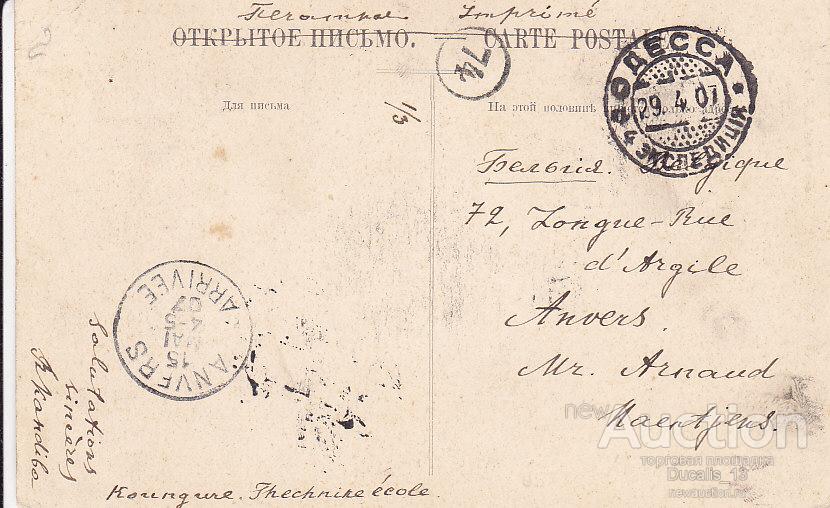 Печатное Imprimé
ОТКРЫТОЕ ПИСЬМО. CARTE POSTALE
Для письма
На этой половинѣ
74
1/3
ОДЕССА
29. 4 07
ЭКСПЕДИЦІЯ
Бельгія. Belgique
72, Longue-Rue
d'Argile
Anvers.
Mr. Arnaud
Kaentjens.
ANVERS
15
MAI
4-5
07
ARRIVEE
Salutations
sincères
Koungure. Thechnike école.
newauction
Auction
торговая площадка
Ducalis_13
newauction.ru